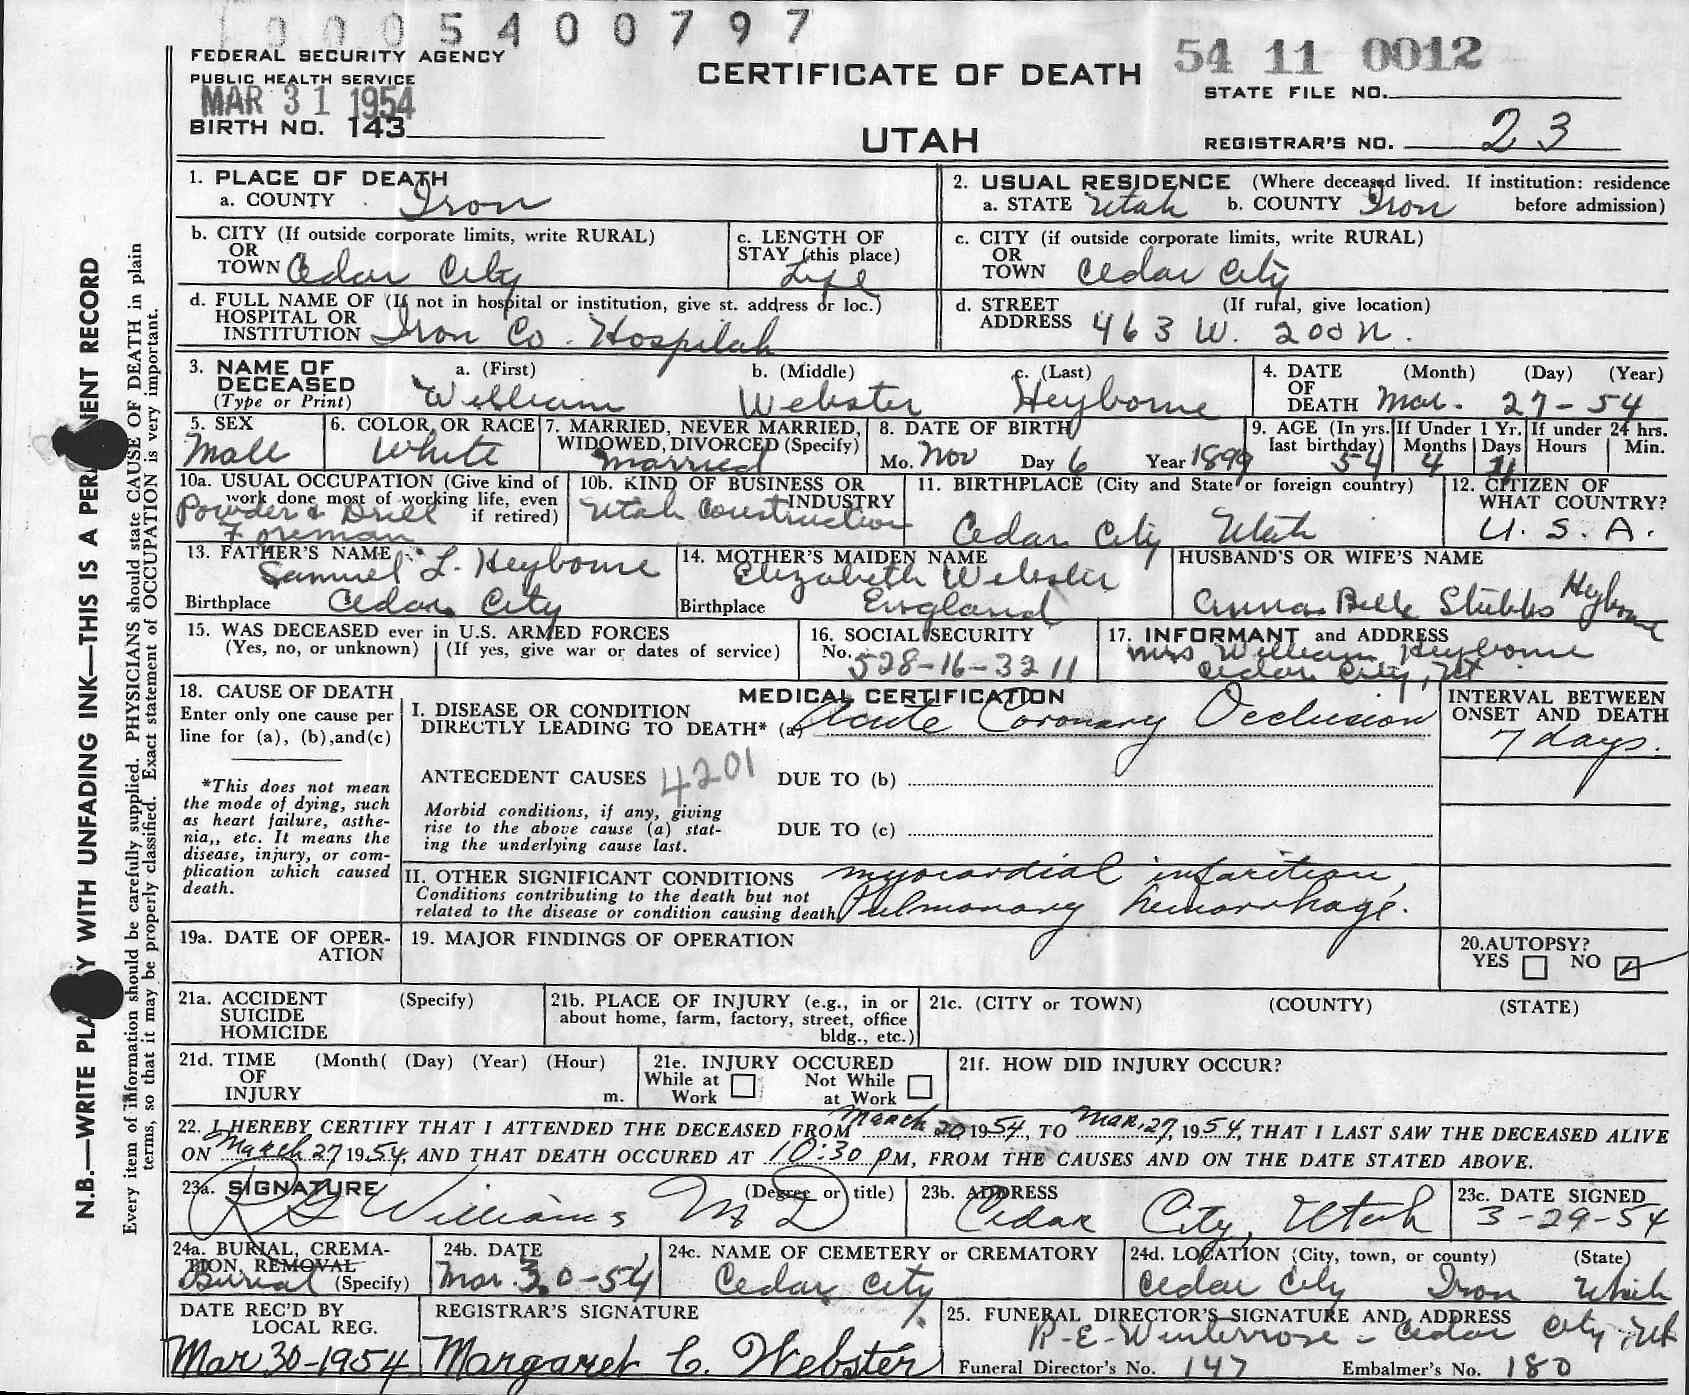 0005400797
FEDERAL SECURITY AGENCY
PUBLIC HEALTH SERVICE
MAR 31 1954
BIRTH NO. 143
CERTIFICATE OF DEATH
UTAH
54 11 0012
STATE FILE NO.
REGISTRAR'S NO. 23
N.B.—WRITE PLA Y WITH UNFADING INK—THIS IS A PER NENT RECORD
Every item of information should be carefully supplied. PHYSICIANS should state CAUSE OF DEATH in plain
terms, so that it may be properly classified. Exact statement of OCCUPATION is very important.
1. PLACE OF DEATH
a. COUNTY Iron
2. USUAL RESIDENCE (Where deceased lived. If institution: residence
a. STATE Utah b. COUNTY Iron before admission)
b. CITY (If outside corporate limits, write RURAL)
OR
TOWN Cedar City
c. LENGTH OF
STAY (this place)
Life
c. CITY (if outside corporate limits, write RURAL)
OR
TOWN Cedar City
d. FULL NAME OF (If not in hospital or institution, give st. address or loc.)
HOSPITAL OR
INSTITUTION Iron Co. Hospital
d. STREET (If rural, give location)
ADDRESS 463 W. 200 N.
3. NAME OF
DECEASED
(Type or Print)
a. (First) b. (Middle) c. (Last)
William Webster Heyborne
4. DATE (Month) (Day) (Year)
OF
DEATH Mar. 27-54
5. SEX
Male
6. COLOR OR RACE
White
7. MARRIED, NEVER MARRIED,
WIDOWED, DIVORCED (Specify)
Married
8. DATE OF BIRTH
Mo. Nov Day 6 Year 1899
9. AGE (In yrs.
last birthday)
54
If Under 1 Yr.
Months Days
4
If under 24 hrs.
Hours Min.
10a. USUAL OCCUPATION (Give kind of
work done most of working life, even
if retired)
Powder & Drill
Foreman
10b. KIND OF BUSINESS OR
INDUSTRY
Utah Construction
11. BIRTHPLACE (City and State or foreign country)
Cedar City Utah
12. CITIZEN OF
WHAT COUNTRY?
U. S. A.
13. FATHER'S NAME
Samuel L. Heyborne
Birthplace Cedar City
14. MOTHER'S MAIDEN NAME
Elizabeth Webster
Birthplace England
HUSBAND'S OR WIFE'S NAME
Anna Belle Stubbs Heyborne
15. WAS DECEASED ever in U.S. ARMED FORCES
(Yes, no, or unknown) (If yes, give war or dates of service)
16. SOCIAL SECURITY
No. 528-16-3211
17. INFORMANT and ADDRESS
Mrs William Heyborne
Cedar City, Ut
18. CAUSE OF DEATH
Enter only one cause per
line for (a), (b), and (c)
*This does not mean
the mode of dying, such
as heart failure, asthe-
nia,, etc. It means the
disease, injury, or com-
plication which caused
death.
MEDICAL CERTIFICATION
I. DISEASE OR CONDITION
DIRECTLY LEADING TO DEATH* (a) Acute Coronary Occlusion
ANTECEDENT CAUSES 4201 DUE TO (b)
Morbid conditions, if any, giving
rise to the above cause (a) stat-
ing the underlying cause last.
DUE TO (c)
II. OTHER SIGNIFICANT CONDITIONS
Conditions contributing to the death but not
related to the disease or condition causing death
myocardial infarction,
Pulmonary hemorrhage.
INTERVAL BETWEEN
ONSET AND DEATH
7 days.
19a. DATE OF OPER-
ATION
19. MAJOR FINDINGS OF OPERATION
20. AUTOPSY?
YES NO
21a. ACCIDENT (Specify)
SUICIDE
HOMICIDE
21b. PLACE OF INJURY (e.g., in or
about home, farm, factory, street, office
bldg., etc.)
21c. (CITY or TOWN) (COUNTY) (STATE)
21d. TIME (Month( (Day) (Year) (Hour)
OF
INJURY m.
21e. INJURY OCCURED
While at Not While
Work at Work
21f. HOW DID INJURY OCCUR?
22. I HEREBY CERTIFY THAT I ATTENDED THE DECEASED FROM March 20 1954, TO Mar. 27, 1954, THAT I LAST SAW THE DECEASED ALIVE
ON March 27, 1954, AND THAT DEATH OCCURED AT 10:30 PM, FROM THE CAUSES AND ON THE DATE STATED ABOVE.
23a. SIGNATURE (Degree or title)
Williams MD
23b. ADDRESS
Cedar City, Utah
23c. DATE SIGNED
3-29-54
24a. BURIAL, CREMA-
TION, REMOVAL
Burial (Specify)
24b. DATE
Mar. 30-54
24c. NAME OF CEMETERY or CREMATORY
Cedar City
24d. LOCATION (City, town, or county) (State)
Cedar City Iron Utah
DATE REC'D BY
LOCAL REG.
Mar 30-1954
REGISTRAR'S SIGNATURE
Margaret C. Webster
25. FUNERAL DIRECTOR'S SIGNATURE AND ADDRESS
R-E-Winterrose - Cedar City Ut
Funeral Director's No. 147 Embalmer's No. 180